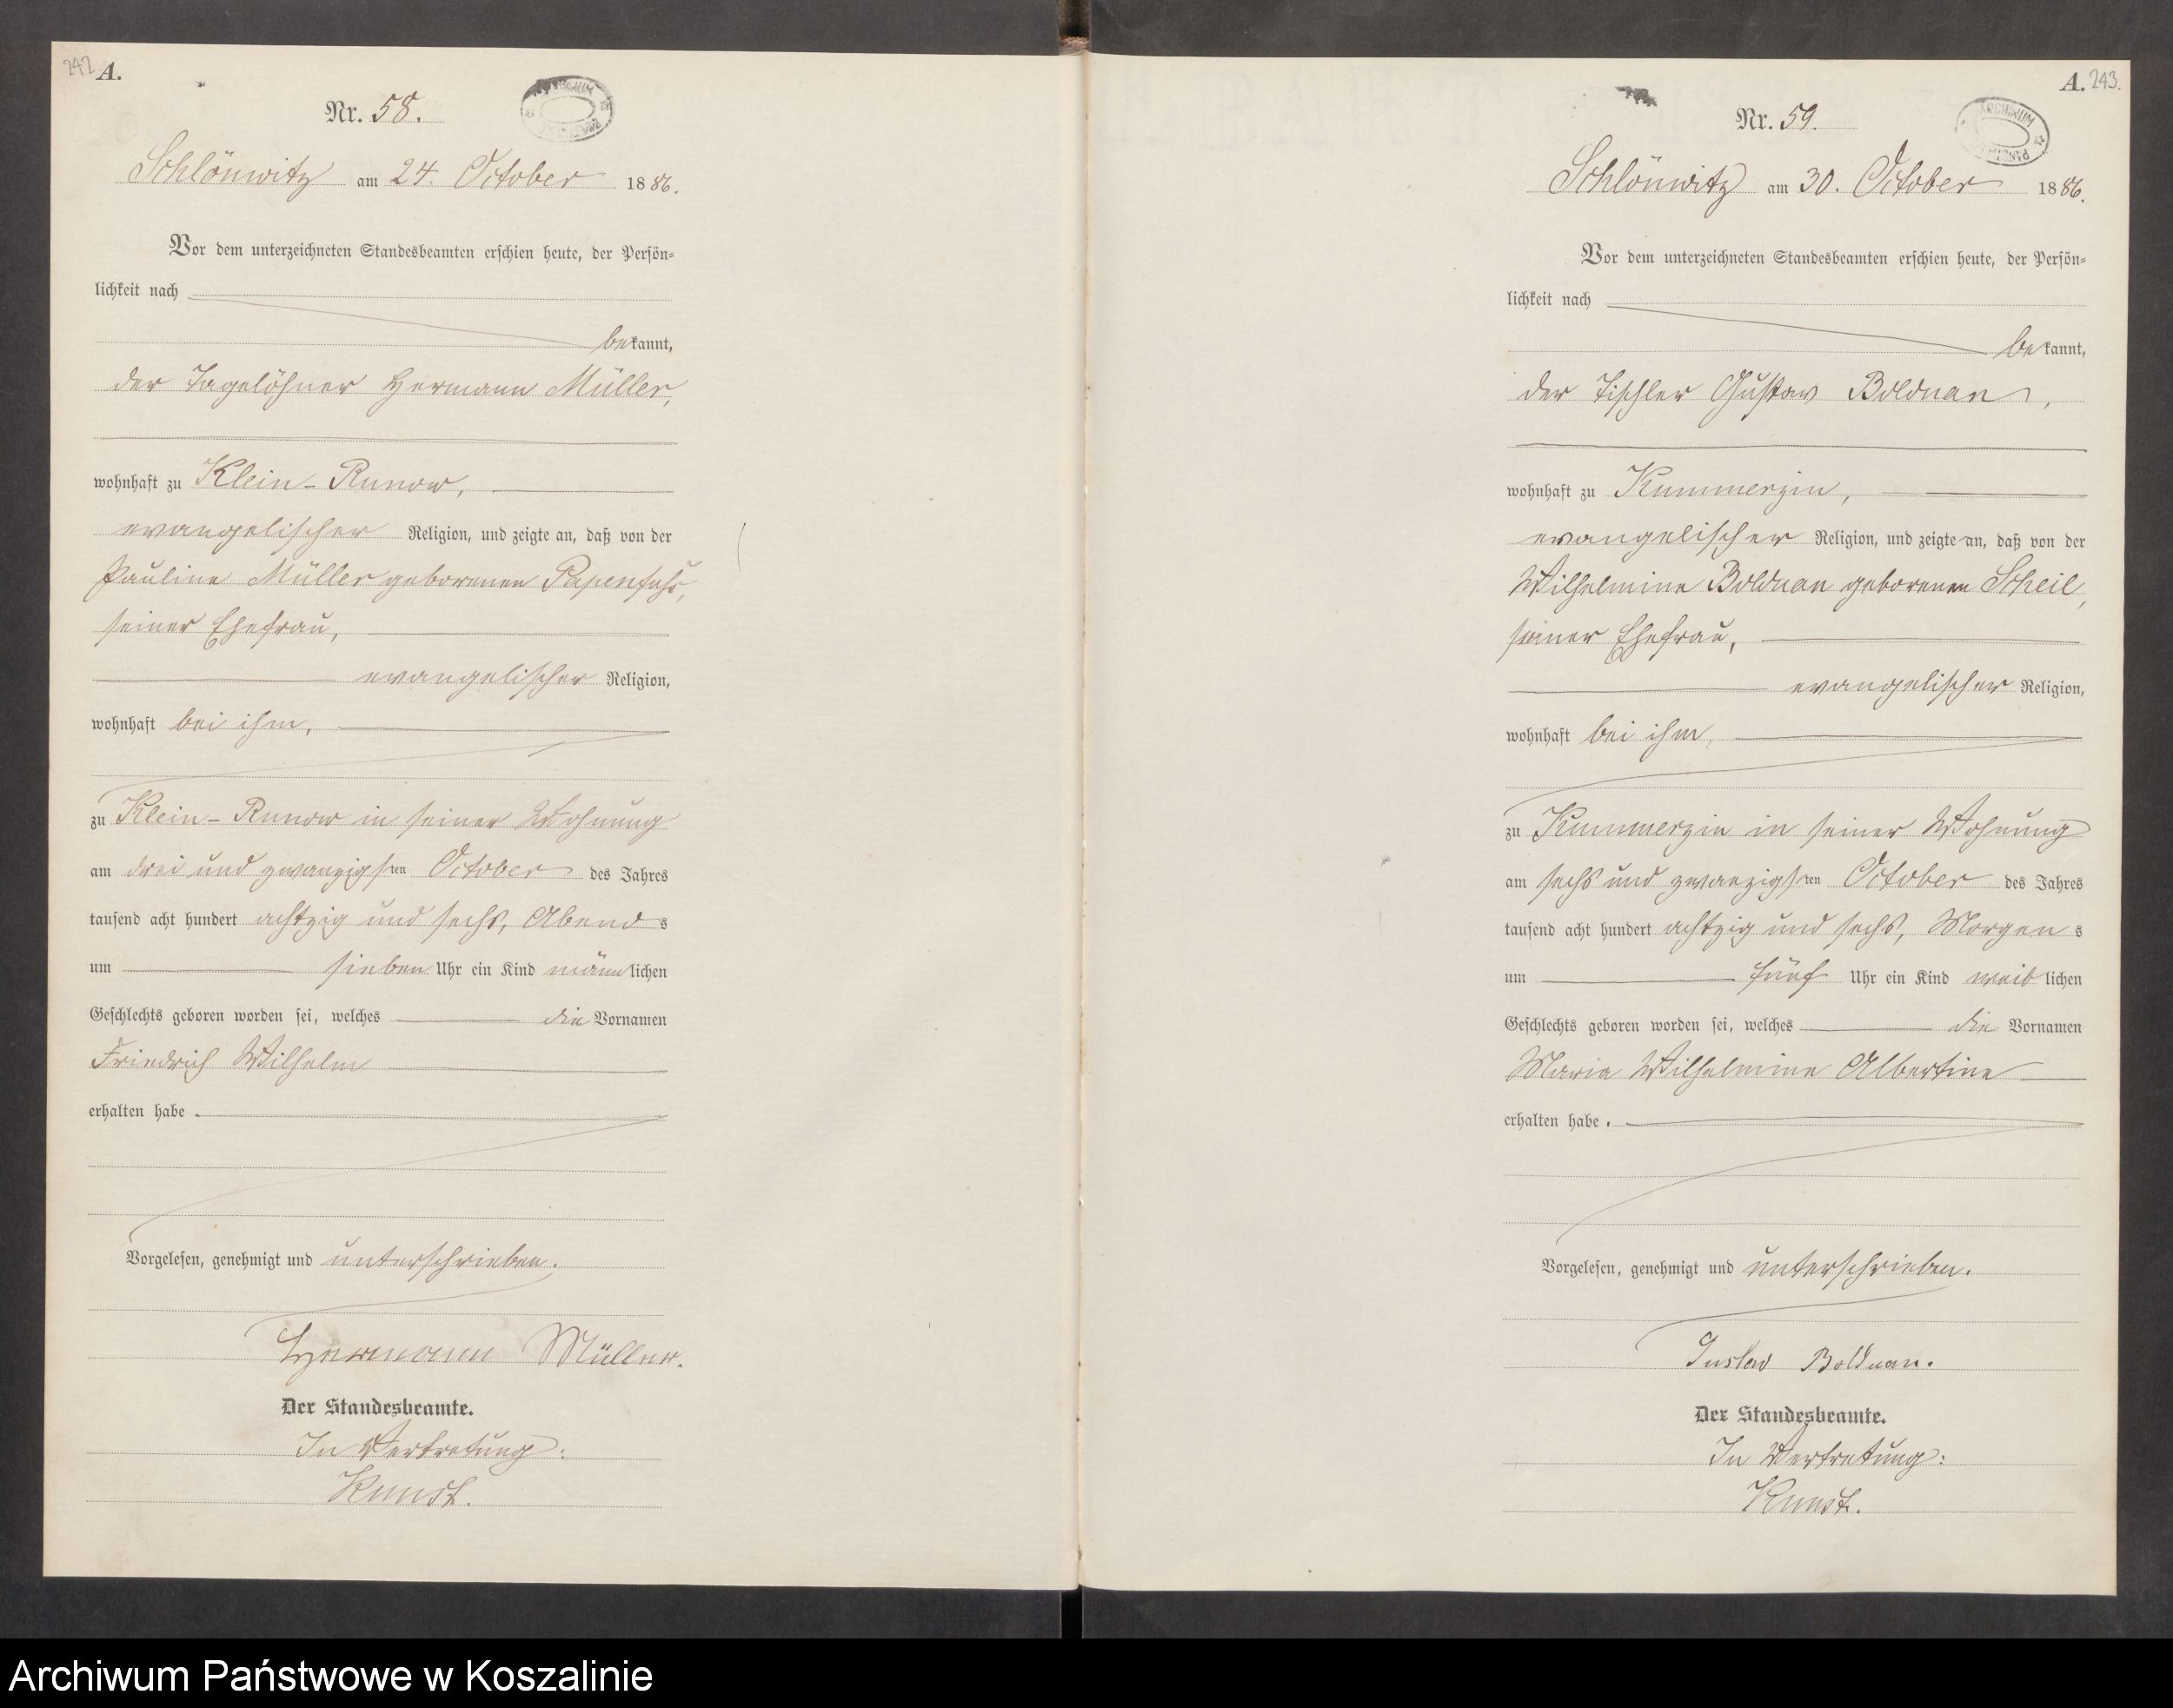 242 A.
Nr. 58.
Schlönwitz am 24. October 1886.
Vor dem unterzeichneten Standesbeamten erschien heute, der Persön=
lichkeit nach
bekannt,
der Tagelöhner Hermann Müller,
wohnhaft zu Klein-Runow,
evangelischer Religion, und zeigte an, daß von der
Pauline Müller geborenen Papenfuhs,
seiner Ehefrau,
evangelischer Religion,
wohnhaft bei ihm,
zu Klein-Runow in seiner Wohnung
am drei und zwanzigsten October des Jahres
tausend acht hundert achtzig und sechs, Abends
um sieben Uhr ein Kind männlichen
Geschlechts geboren worden sei, welches die Vornamen
Friedrich Wilhelm
erhalten habe.
Vorgelesen, genehmigt und unterschrieben.
Hermann Müller.
Der Standesbeamte.
In Vertretung:
Kunst.
A. 243.
Nr. 59.
ARCHIWUM
Schlönwitz am 30. October 1886.
Vor dem unterzeichneten Standesbeamten erschien heute, der Persön=
lichkeit nach
bekannt,
der Tischler Gustav Bolduan,
wohnhaft zu Kummerzin,
evangelischer Religion, und zeigte an, daß von der
Wilhelmine Bolduan geborenen Scheil,
seiner Ehefrau,
evangelischer Religion,
wohnhaft bei ihm,
zu Kummerzin in seiner Wohnung
am sechs und zwanzigsten October des Jahres
tausend acht hundert achtzig und sechs, Morgens
um fünf Uhr ein Kind weiblichen
Geschlechts geboren worden sei, welches die Vornamen
Maria Wilhelmine Albertine
erhalten habe.
Vorgelesen, genehmigt und unterschrieben.
Gustav Bolduan.
Der Standesbeamte.
In Vertretung:
Kunst.
Archiwum Państwowe w Koszalinie